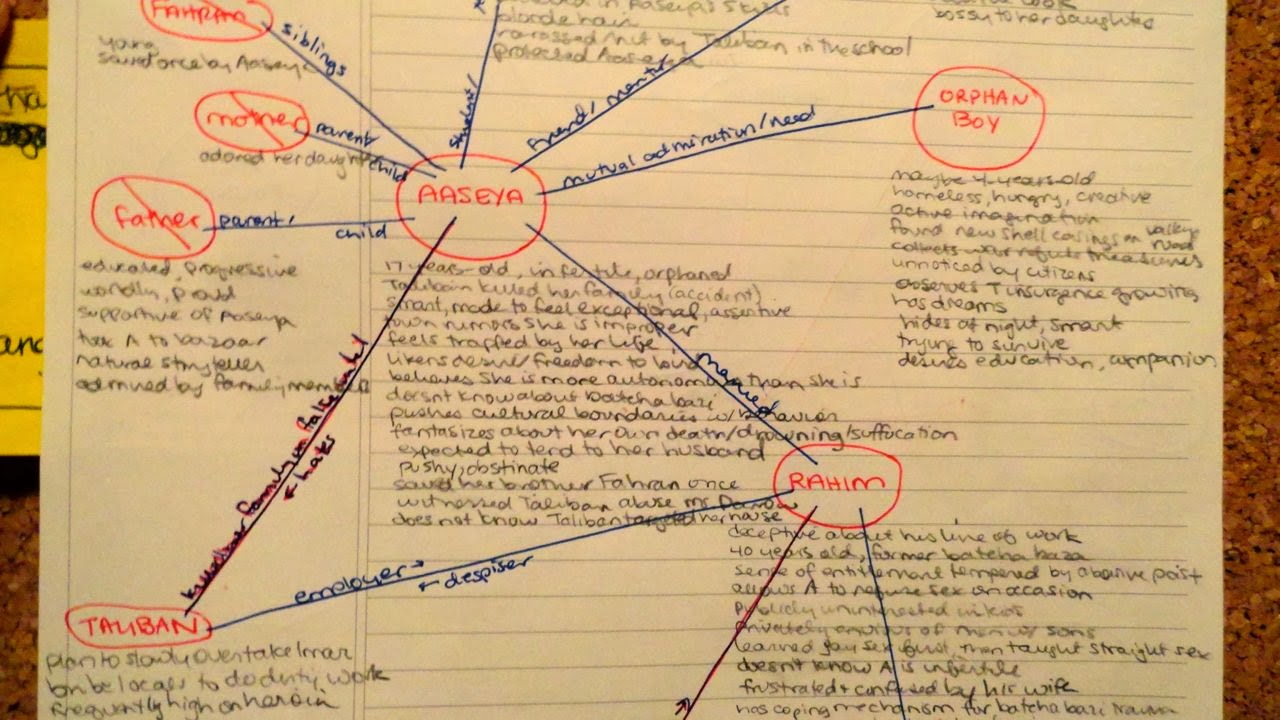 FAHRAN
siblings
young
saved once by Aaseya
mother
parent/
child
adored her daughter
father
parent/
child
educated, progressive
worldly, proud
supportive of Aaseya
took A to bazaar
natural storyteller
admired by family members
student/
in Aaseya's
blonde hair
harassed by Taliban in the school
protected Aaseya
friend/mentor
bossy to her daughter
mutual admiration/need
ORPHAN
BOY
maybe 4 years old
homeless, hungry, creative
active imagination
found new shell casings on valley road
collects war refuse treasures
unnoticed by citizens
observes T insurgence growing
has dreams
hides at night, smart
trying to survive
desires education, companion
AASEYA
17 years-old, infertile, orphaned
Taliban killed her family (accident)
smart, made to feel exceptional, assertive
town rumors she is improper
feels trapped by her life
likens desire/freedom to bird
believes she is more autonomous than she is
doesnt know about batcha bazi
pushes cultural boundaries w/ behavior
fantasizes about her own death/drowning/suffocation
expected to tend to her husband
pushy, obstinate
saved her brother Fahran once
witnessed Taliban abuse Ms. Darrow
does not know Taliban targeted her house
married
killed her family on false
← hates
RAHIM
deceptive about his line of work
40 years old, former batcha baza
sense of entitlement tempered by abusive past
allows A to refuse sex on occasion
publicly uninterested in kids
privately envious of men w/ sons
learned gay sex first, then taught straight sex
doesn't know A is infertile
frustrated + confused by his wife
has coping mechanism for batcha bazi trauma
employer →
← despiser
TALIBAN
plan to slowly overtake Imar
bribe locals to do dirty work
frequently high on heroin